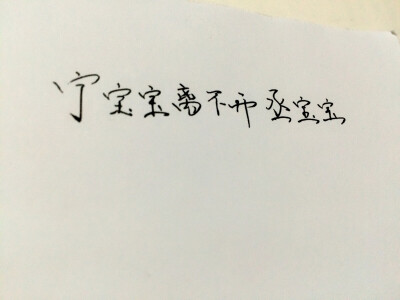 宁宝宝离不开丞宝宝